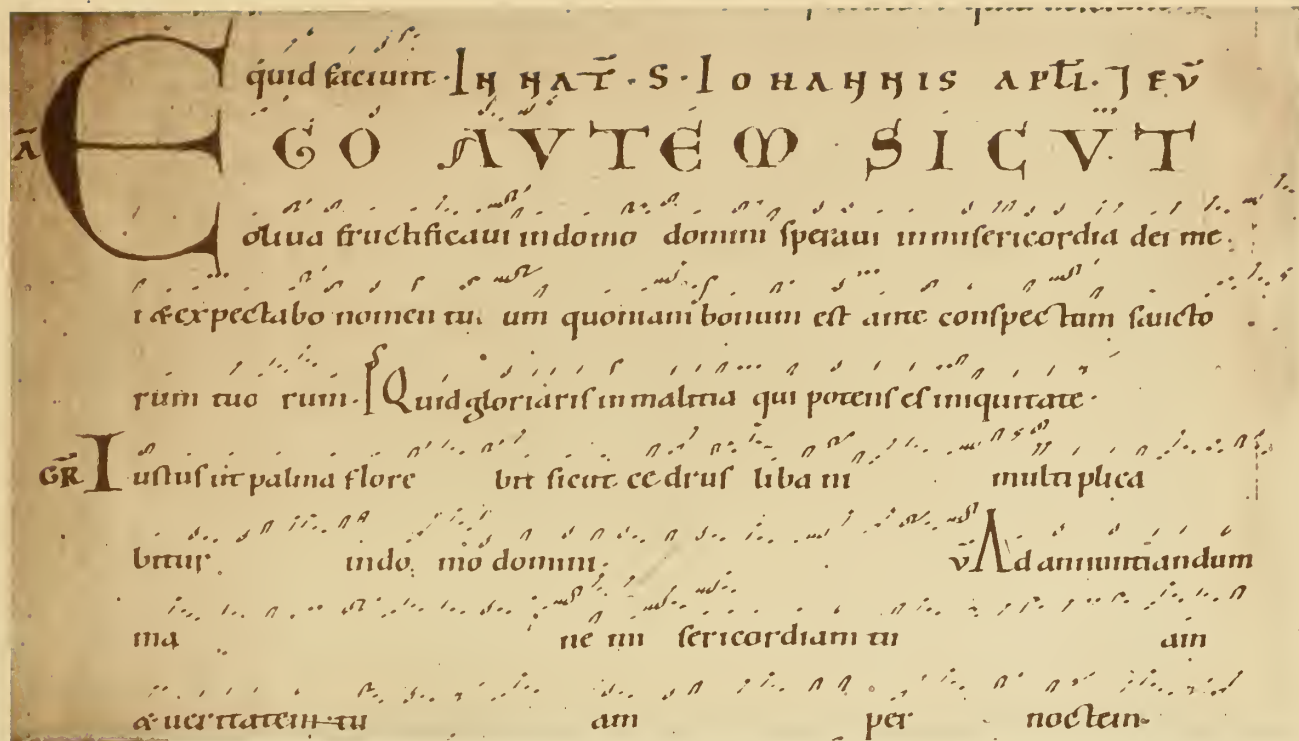 quid faciunt · IN NAT̄ · S · IOHANNIS APŁI · 7 EV̄
Ā EGO AVTEM SICVT
oliua fructificaui in domo domini speraui in misericordia dei me
i & expectabo nomen tu um quoniam bonum est ante conspectum sancto
rum tuo rum · PS Quid gloriaris in malitia qui potens es iniquitate ·
GR̄ Iustus ut palma flore bit sicut cedrus liba ni multi plica
bitur in do mo domini · V̄ Ad annuntiandum
ma ne mi sericordiam tu am
& ueritatem tu am per noctem ·